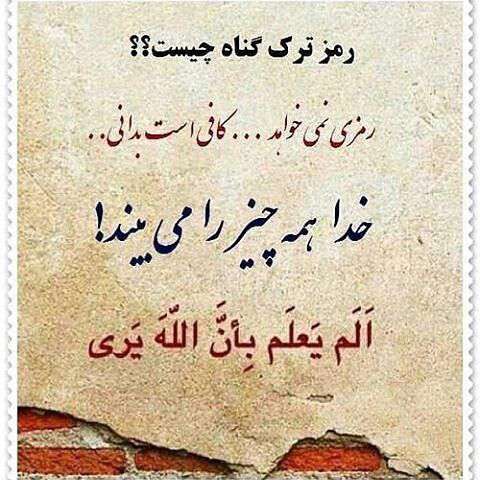 رمز ترک گناه چیست؟؟
رمزی نمی خواهد ... کافی است بدانی..
خدا همه چیز را می بیند!
اَلَم یَعلَم بِأنَّ اللّهَ یَری